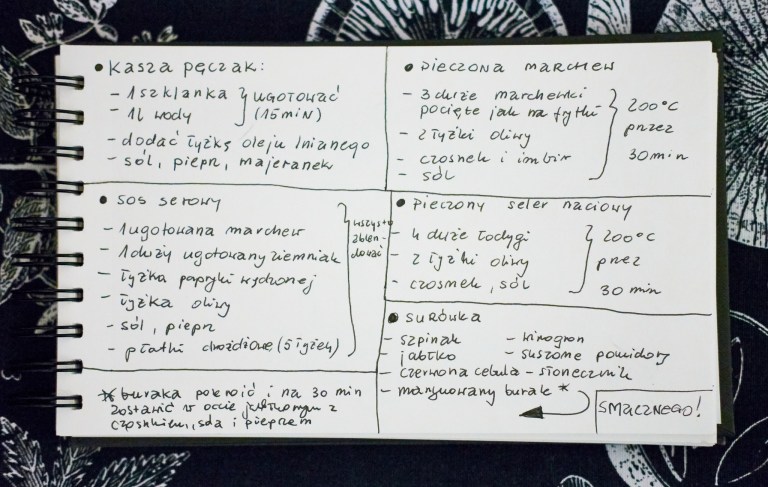 • Kasza pęczak:
- 1 szklanka
- 1l wody
ugotować
(15 min)
- dodać łyżkę oleju lnianego
- sól, pieprz, majeranek
• pieczona marchew
- 3 duże marchewki
pocięte jak na frytki
- 2 łyżki oliwy
- czosnek i imbir
- sól
200°C
przez
30 min
• sos serowy
- 1 ugotowana marchew
- 1 duży ugotowany ziemniak
- łyżka papryki wędzonej
- łyżka oliwy
- sól, pieprz
- płatki drożdżowe (5 łyżek)
wszystko
zblen-
dować
• pieczony seler naciowy
- 4 duże łodygi
- 2 łyżki oliwy
- czosnek, sól
200°C
przez
30 min
• surówka
- szpinak - winogron
- jabłko - suszone pomidory
- czerwona cebula - słonecznik
- marynowany burak *
* buraka pokroić i na 30 min
zostawić w occie jabłkowym z
czosnkiem, solą i pieprzem
SMACZNEGO!